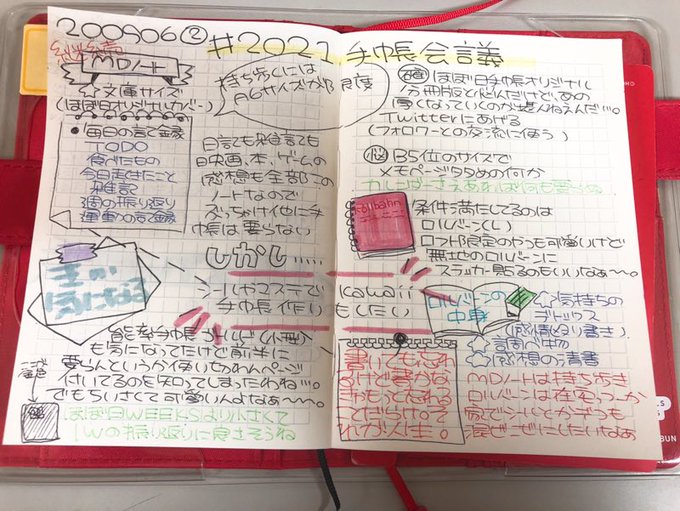 200906② #2021手帳会議
MDノート
☆文庫サイズ
(ほぼ日オリジナルカバー)
持ち歩くには
A6サイズが限度
・毎日の記録
TODO
食べたもの
今日起きたこと
雑記
週の振り返り
運動の記録
日記でも雑記でも
映画、本、ゲームの
感想も全部この
ノートなので
ぶっちゃけ他に手
帳は要らない
しかし.....
気になる
手帳作り
も気になってたけど前半に
要らんというか使い切れんページ
付いてるのを知ってしまったわね…。
でもちいさくて可愛いんよなぁ〜〜。
ほぼ日WEEKSより小さくて
1Wの振り返りに良さそうね
ほぼ日手帳オリジナル
分冊版と悩んだけど、あの
厚くなっていくのが堪んねえんだ…。
Twitterにあげる
(フォロワーとの交流に使う)
㊙ B5位のサイズで
メモページ多めの何か
カレンダーさえあれば何も要らん
Rollbahn
条件満たしてるのは
ロルバーン(L)
ロフト限定のやつも可愛いけど
無地のロルバーンに
ステッカー貼るのもいいなぁ〜〜。
kawaii
もしたい
ロルバーンの
中身
☆気持ちの
デトックス
(感情殴り書き)
☆調べ物
☆感想の清書
書いても忘れ
るけど書かな
きゃもっと忘れる
ことだらけ。そ
れが人生。
MDノートは持ち歩き
ロルバーンは在宅っつーか
家でシールとかずっも
混ぜこぜにしたいなぁ